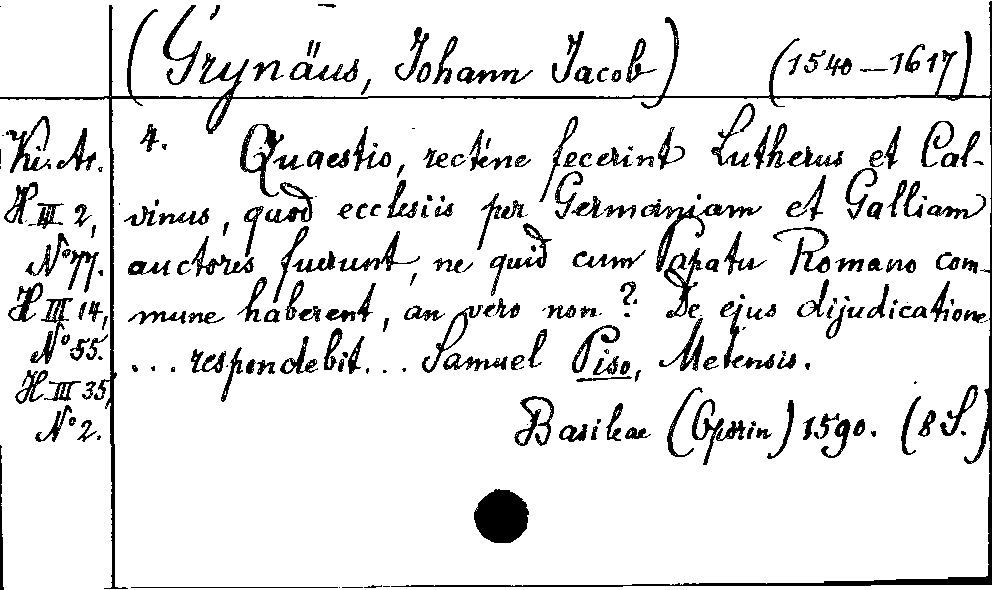 (Grynäus, Johann Jacob) (1540-1617)
Ki. Ar.
H III 2,
N° 77.
H III 14,
N° 55.
H III 35,
N° 2.
4. Quaestio, recténe fecerint Lutherus et Cal-
vinus, quod ecclesiis per Germaniam et Galliam
auctores fuerunt, ne quid cum Papatu Romano com-
mune haberent, an vero non? De ejus dijudicatione
... respondebit... Samuel Piso, Metensis.
Basileae (Oporin) 1590. (8 S.)